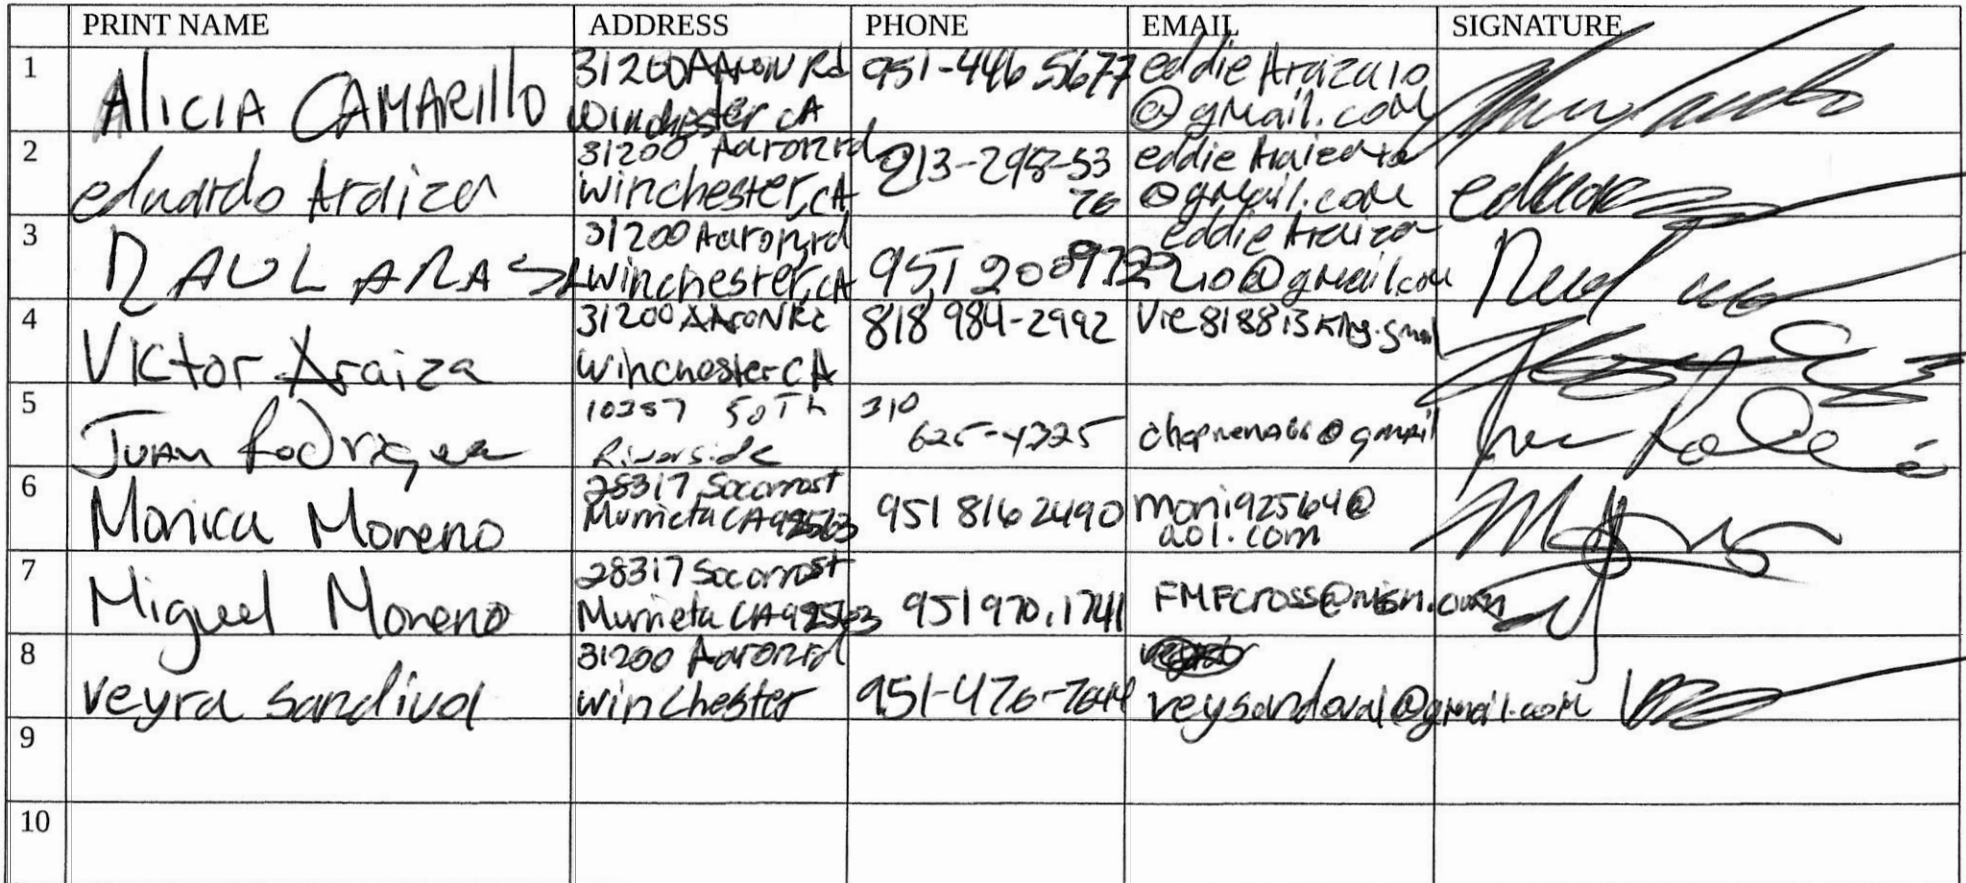 PRINT NAME ADDRESS PHONE EMAIL SIGNATURE
1 Alicia CAMARillo 31200 AAron Rd Winchester CA 951-446 5677 eddie Araiza10 @gmail.com
2 eduardo Araiza 31200 Aaron rd winchester, CA 213-298-53 76 eddie @gmail.com
3 RAUL 31200 Aaron rd winchester, CA 951 200 eddie Araiza 210@gmail.com
4 Victor Araiza 31200 AAroN Rd Winchester CA 818 984-2992
5 Juan Rodriguez 10357 50Th Riverside 310 625-4325 @gmail
6 Monica Moreno 28317 Socorro st Murrieta CA 92563 951 816 2490 moni92564@ aol.com
7 Miguel Moreno 28317 Socorro st Murrieta CA 92563 951 970.1741 FMFcross@msn.com
8 veyra sandival 31200 Aaron rd winchester 951-476-7644 veysandoval@gmail.com
9
10